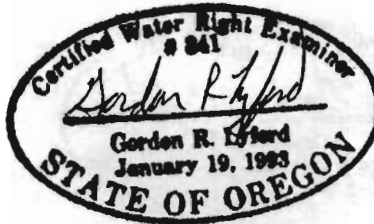 Certified Water Right Examiner
# 841
Gordon R Lyford
Gordon R. Lyford
January 19, 1993
STATE OF OREGON